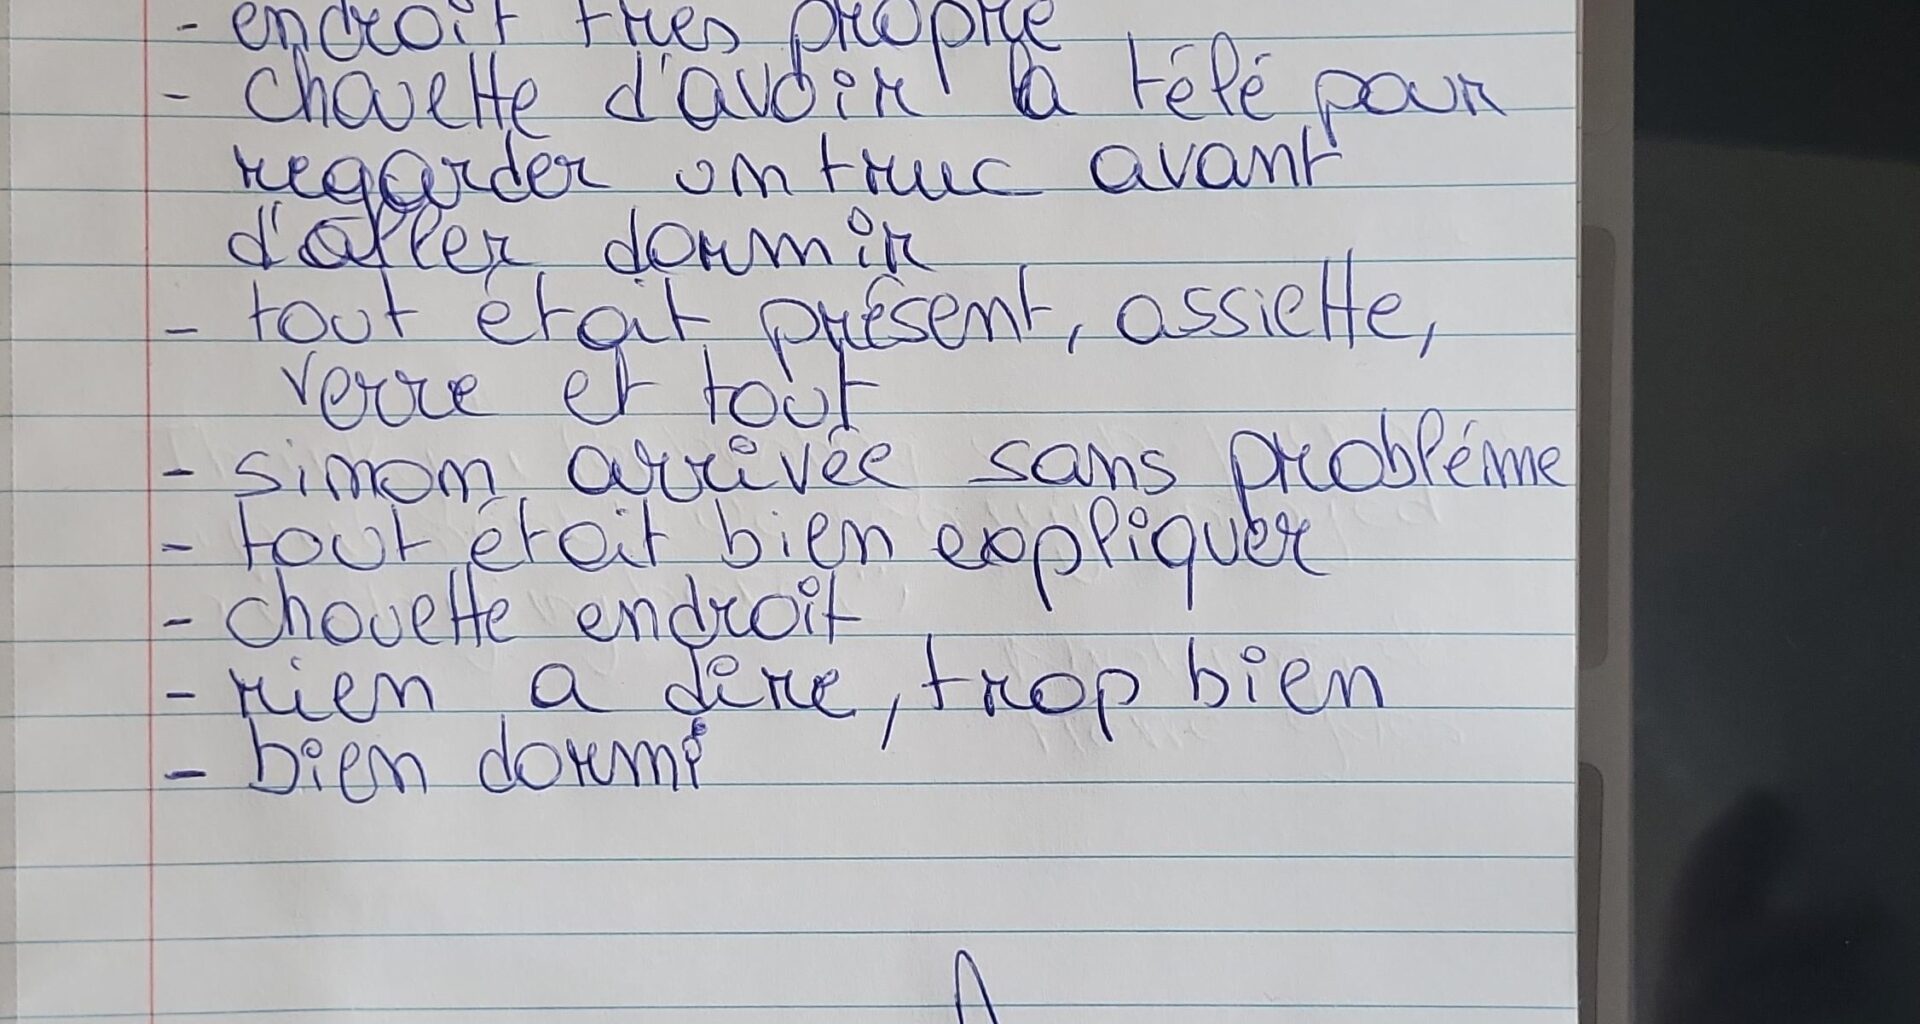 - endroit tres propre
- chouette d'avoir la télé pour
regarder un truc avant
d'aller dormir
- tout était présent, assiette,
verre et tout
- simon arrivée sans probléme
- tout était bien expliquer
- chouette endroit
- rien a dire, trop bien
- bien dormi